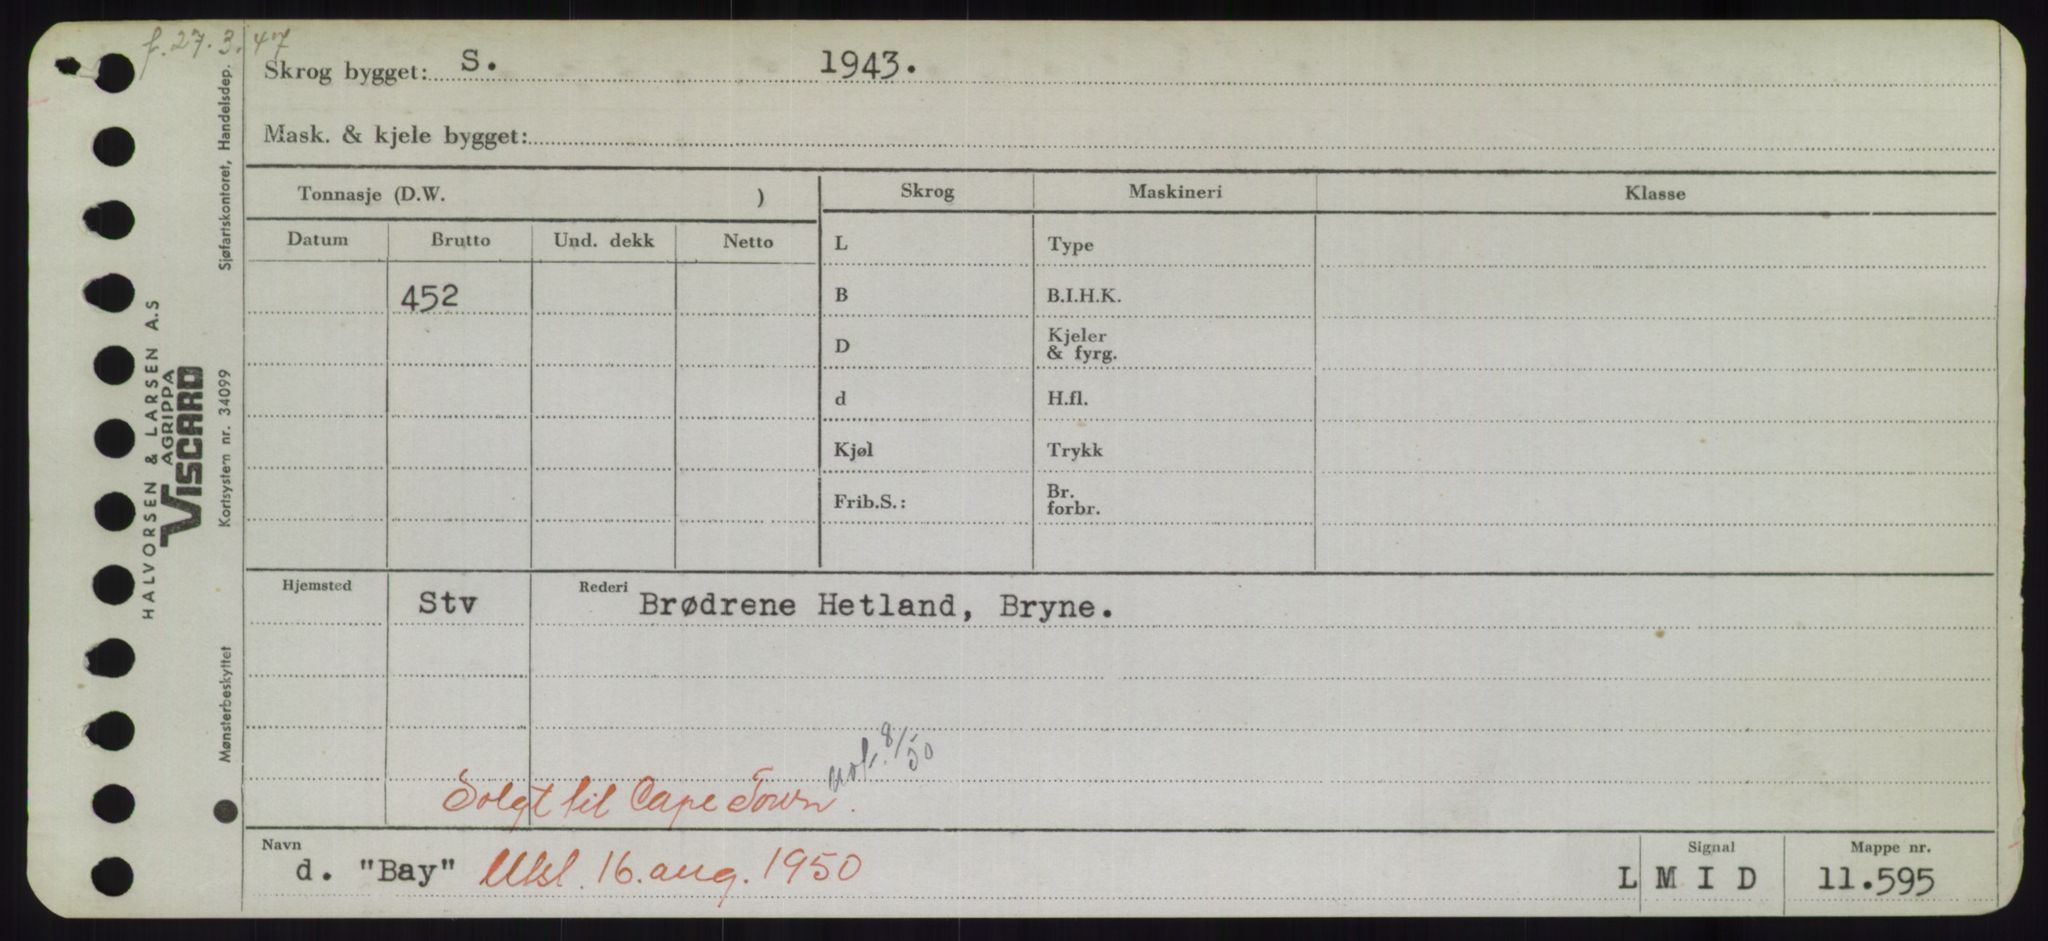 f. 27.3.47
Skrog bygget: S. 1943.
Mask. & kjele bygget:
Tonnasje (D.W. )
Skrog Maskineri Klasse
Datum Brutto Und. dekk Netto
452
L Type
B B.I.H.K.
D Kjeler & fyrg.
d H.fl.
Kjøl Trykk
Frib.S.: Br. forbr.
Hjemsted Stv Rederi Brødrene Hetland, Bryne.
not. 8/50
Solgt til Cape Town.
Navn d. "Bay" Utsl. 16. aug. 1950
Signal L M I D
Mappe nr. 11.595
HALVORSEN & LARSEN A.S
AGRIPPA
VISCARD
Mønsterbeskyttet Kortsystem nr. 34099 Sjøfartskontoret, Handelsdep.